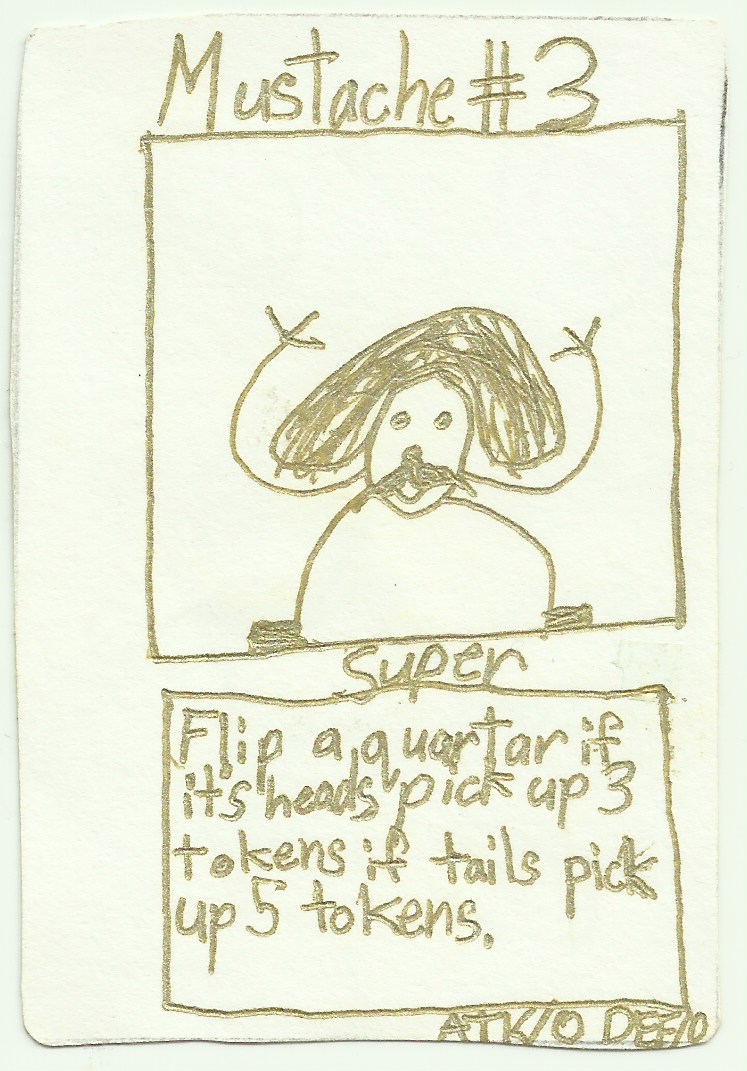 Mustache #3
Super
Flip a quartar if
its heads pick up 3
tokens if tails pick
up 5 tokens.
ATK/0 DEF/0